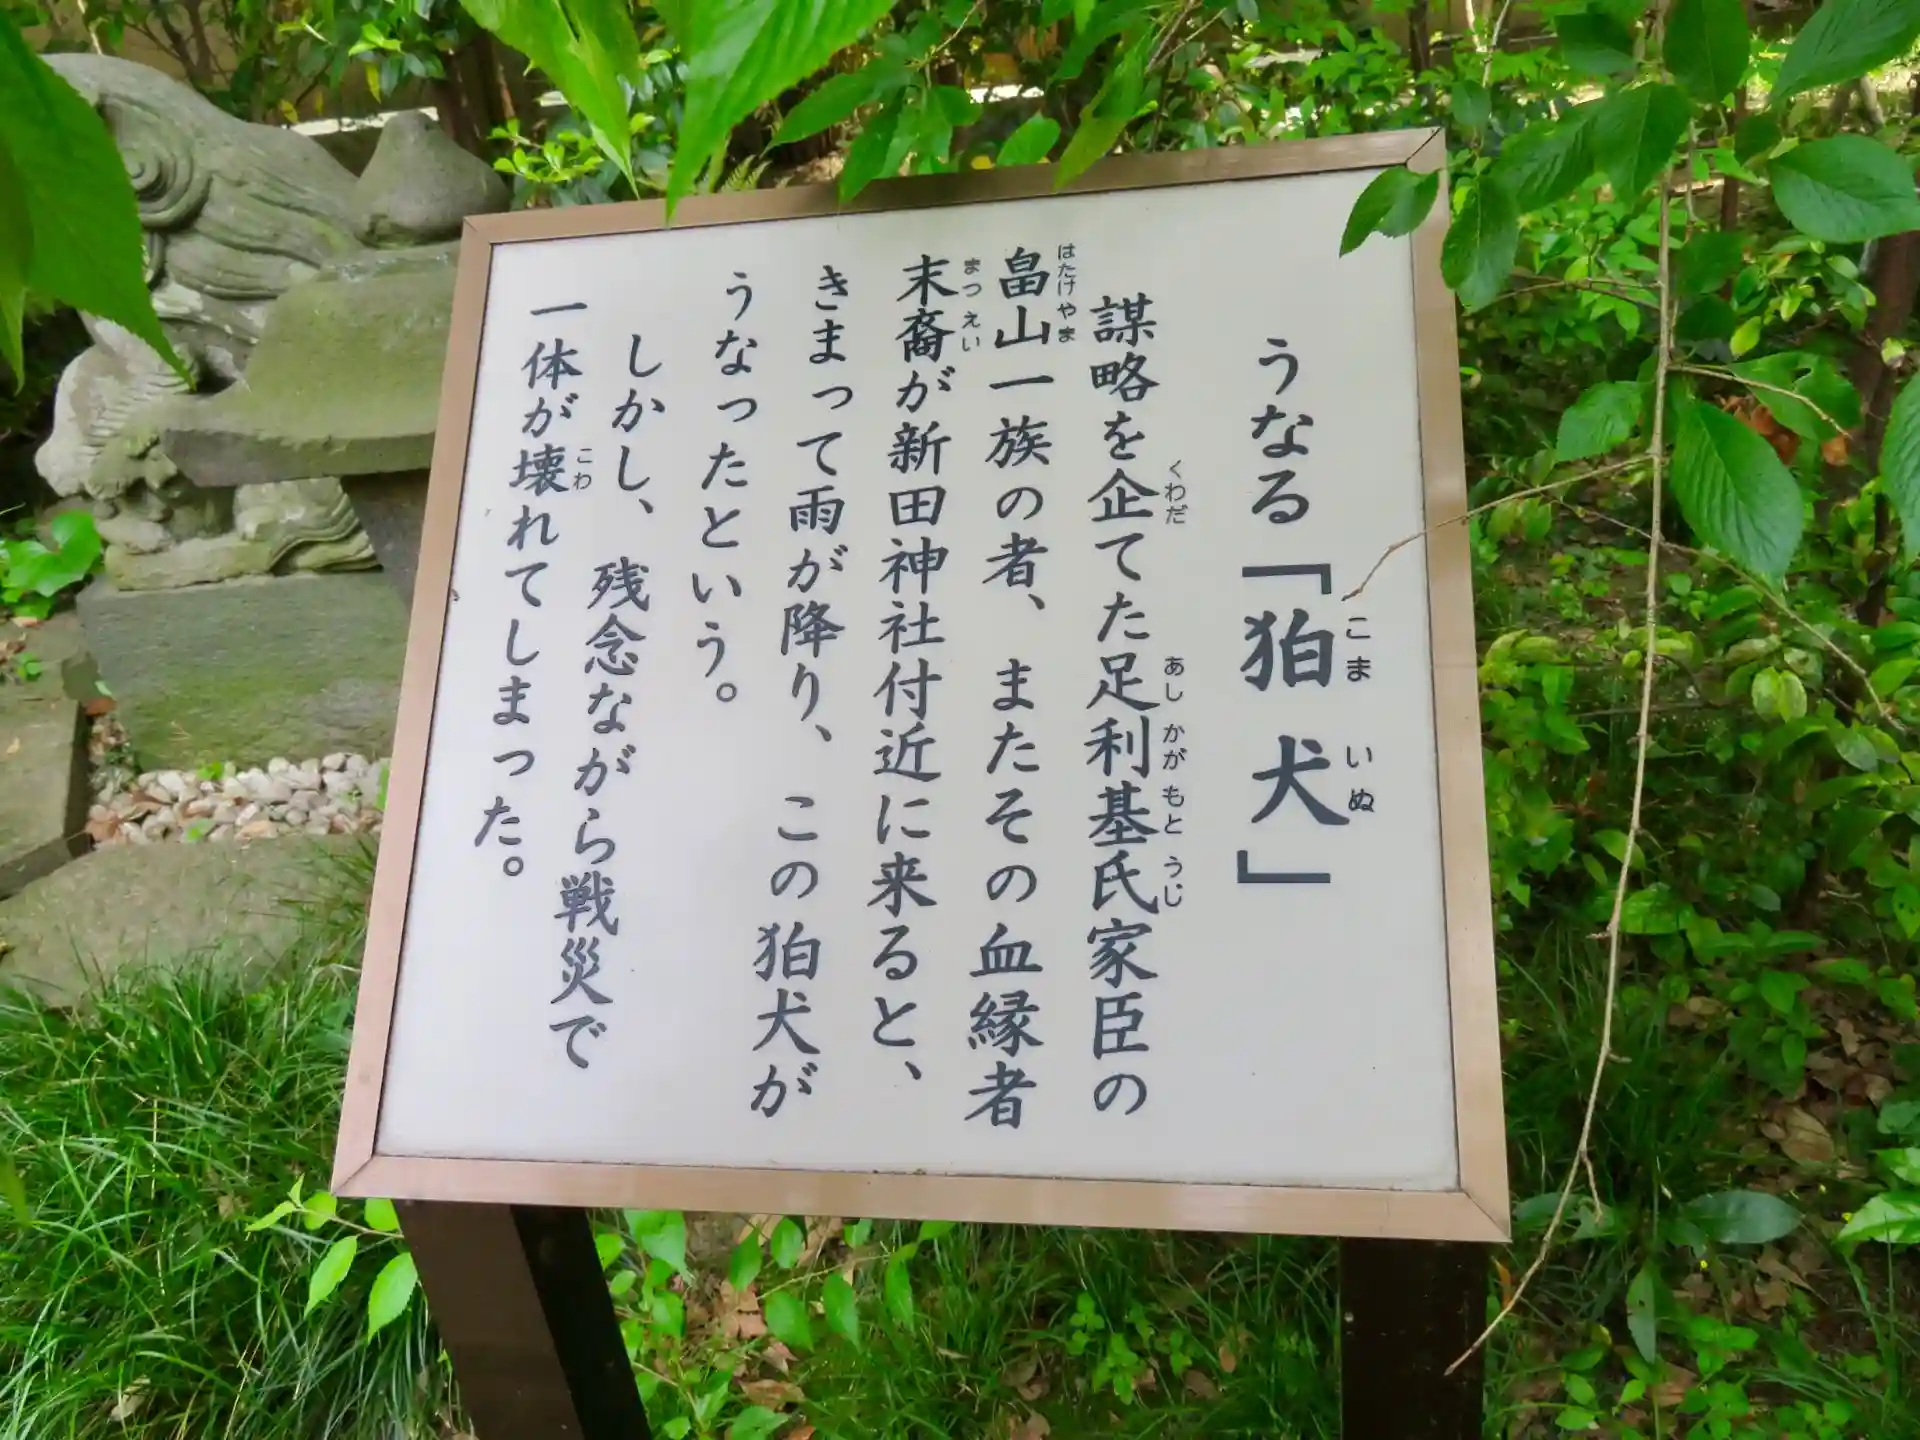 うなる「狛犬」
こまいぬ
謀略を企てた足利基氏家臣の
くわだ
あしかがもとうじ
畠山一族の者、またその血縁者
はたけやま
末裔が新田神社付近に来ると、
まつえい
きまって雨が降り、この狛犬が
うなったという。
しかし、残念ながら戦災で
一体が壊れてしまった。
こわ